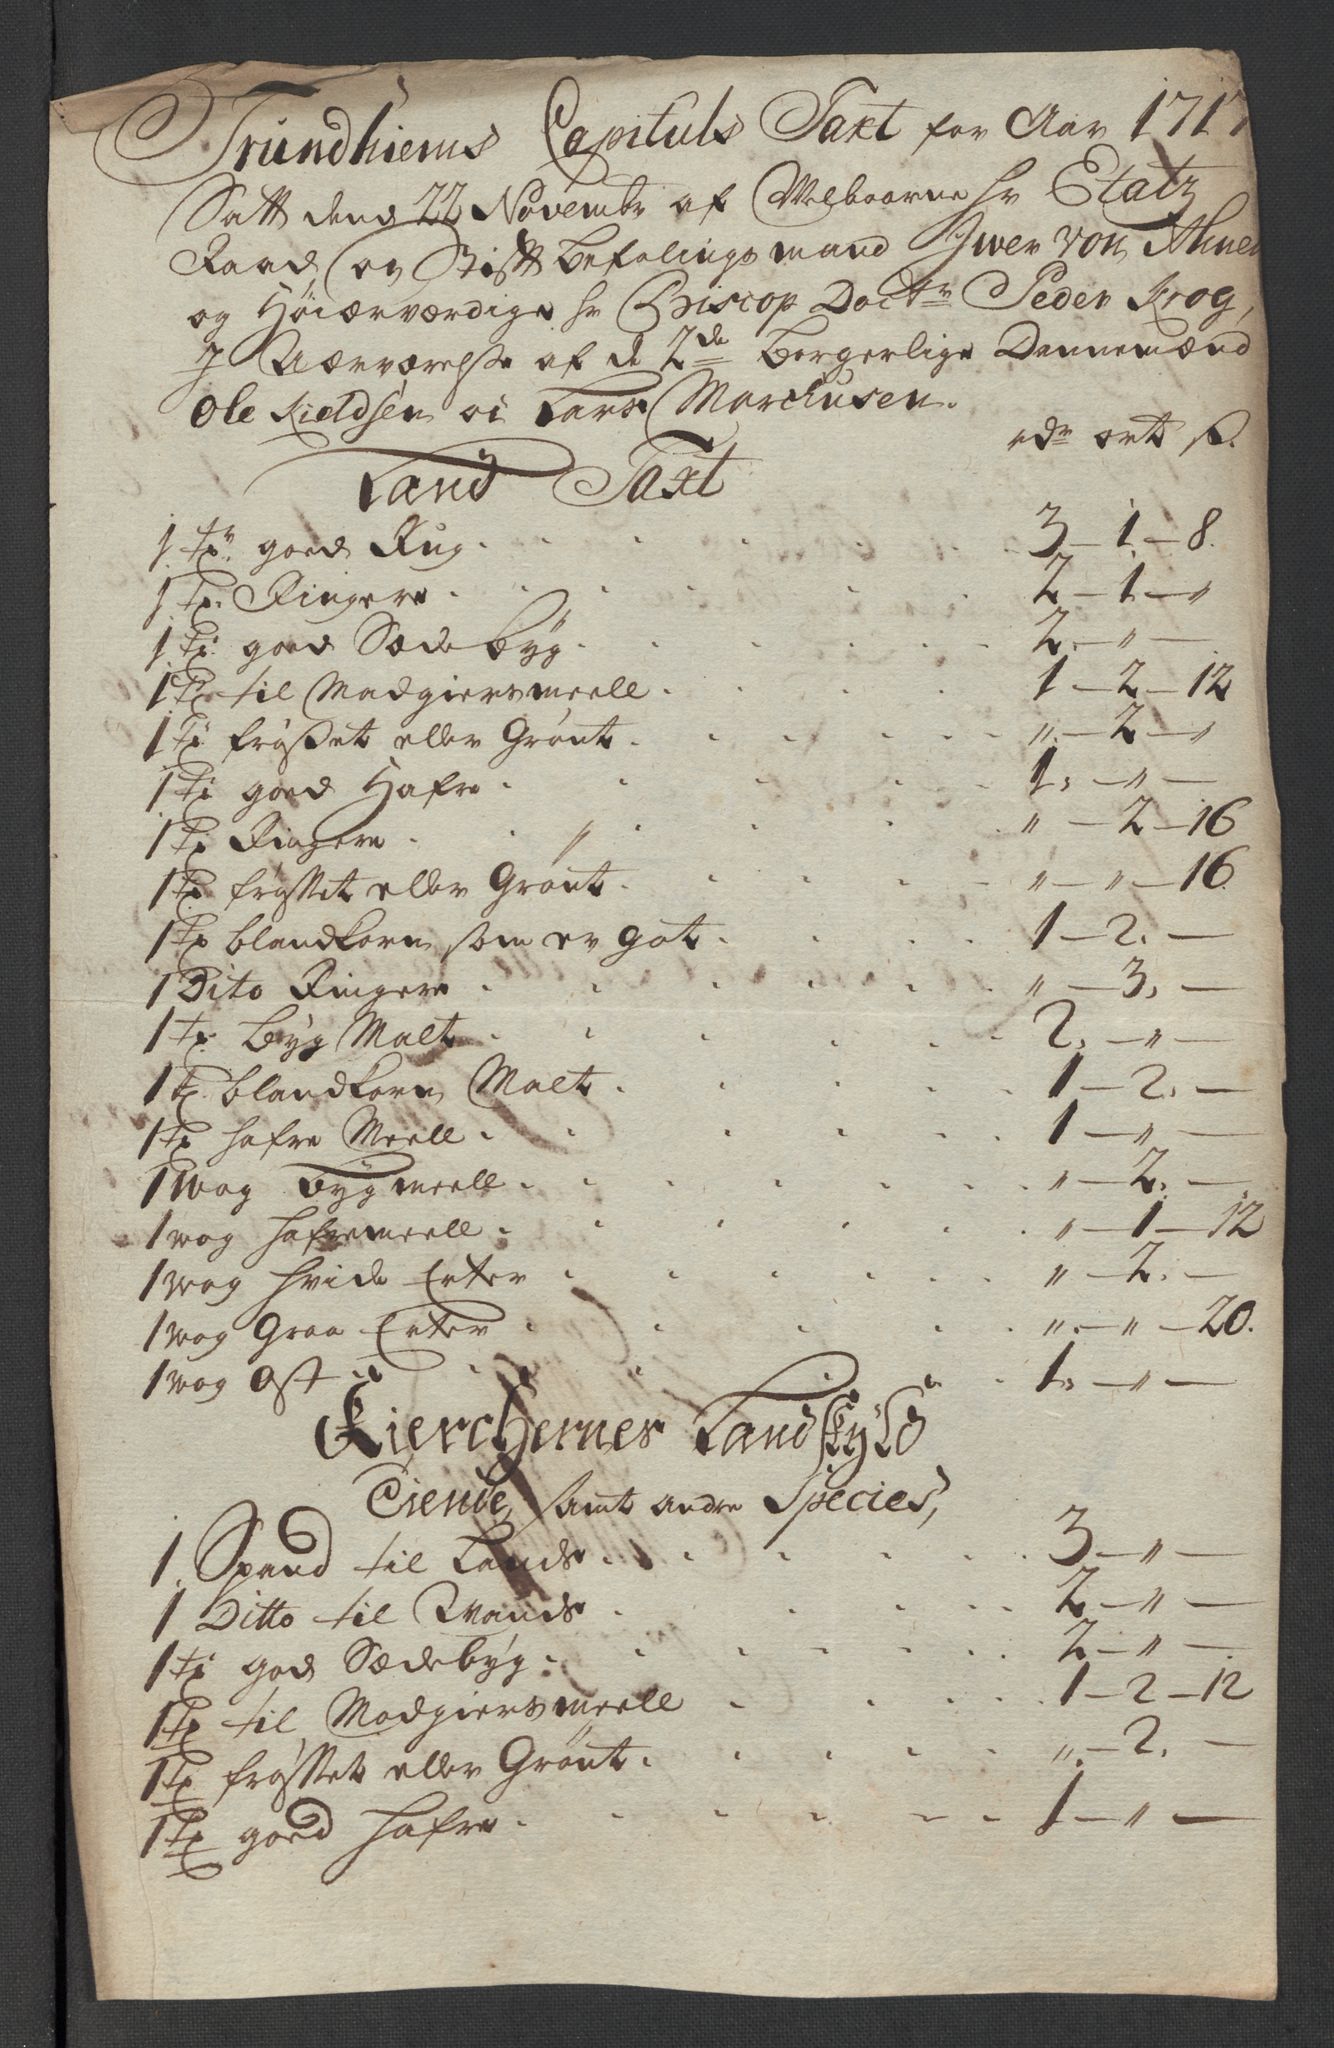 Trundhiems Capituls Taxt for Aar 1717
Satt dend 22 Novembr af Welbaarne Hr Etatz
Raad og Stift befalings mand Iwer von Ahnen
og Høiærværdige Hr Biscop Doctr Peder Krog,
I Nærværelse af de 2de borgerlige Dannemænd
Ole Kieldsen oc Lars Marchusen.
rdr ort s.
Land Taxt
1 tr goed Rug 3 - 1 - 8.
1 tr Ringere 2 - 1 - "
1 tr goed Sæde byg 2. - " -
1 tr til Madgiersmeell 1 - 2 - 12
1 tr frosset eller Grønt " - 2 - "
1 tr goed Hafre 1. - " -
1 tr Ringere " - 2 - 16
1 tr frosset eller Grønt " - " - 16.
1 tr blandkorn som er got 1 - 2. -
1 Dito Ringere " - 3. -
1 tr byg Malt 2. - " -
1 tr blandkorn Malt 1 - 2. -
1 tr hafre Meell 1 - " -
1 wog bygmeell " - 2. -
1 wog hafremeell " - 1 - 12
1 wog hvide Erter " - 2. -
1 wog Graa Erter " - " - 20.
1 wog Ost 1. - " -
Kierchernes Landskyld
Tiende, samt andre Species,
1. Spand til Lands 3 - " -
1 Ditto til Wands 2 - " -
1 tr god Sædebyg 2 - " -
1 tr til Madgiersmeell 1 - 2 - 12
1 tr frosset eller Grønt " - 2. -
1 tr goed hafre 1 - " -